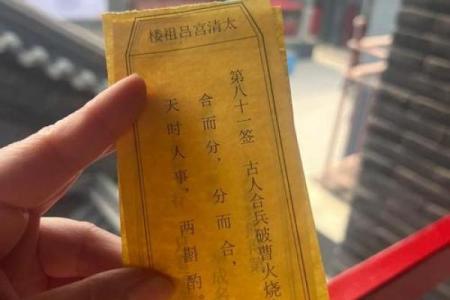 太清宫吕祖楼
第八十一签 古人合兵破曹火烧
合而分，分而合，
天时人事，两斟酌